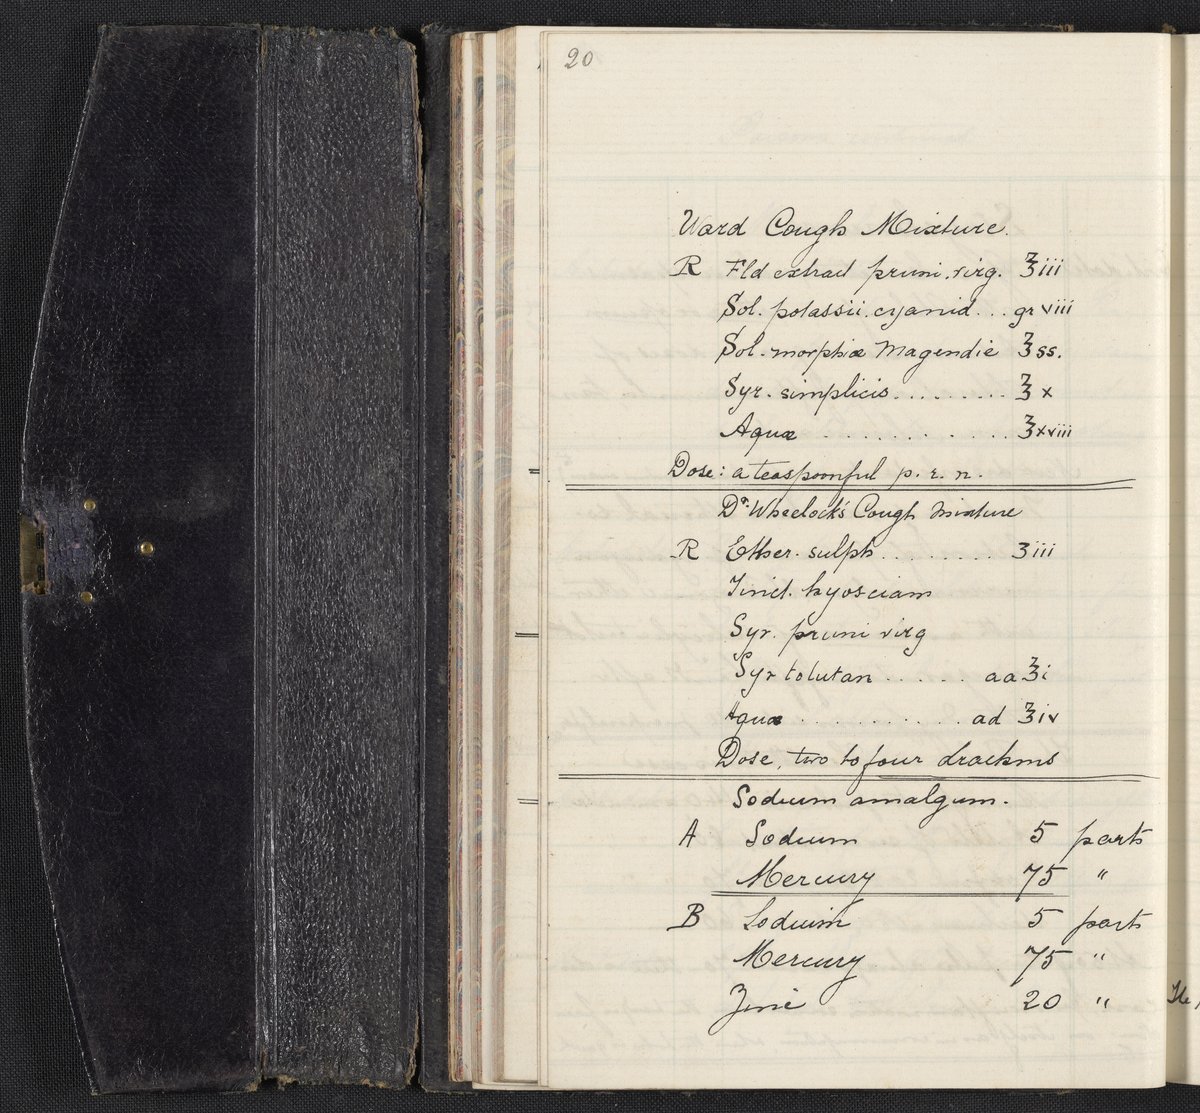 20
Ward Cough Mixture.
R Fld extract pruni. virg. ℥iii
Sol. potassii. cyanid... gr viii
Sol. morphiæ Magendie ℥ss.
Syr. simplicis......... ℥x
Aquæ ............ ℥xviii
Dose: a teaspoonful p. r. n.
Dr. Wheelock's Cough Mixture
R Ether. sulph........ ʒiii
Tinct. hyosciam
Syr. pruni virg
Syr tolutan ...... aa ℥i
Aquæ ............ ad ℥iv
Dose, two to four drachms
Sodium amalgum.
A Sodium 5 parts
Mercury 75 "
B Sodium 5 parts
Mercury 75 "
Zinc 20 "